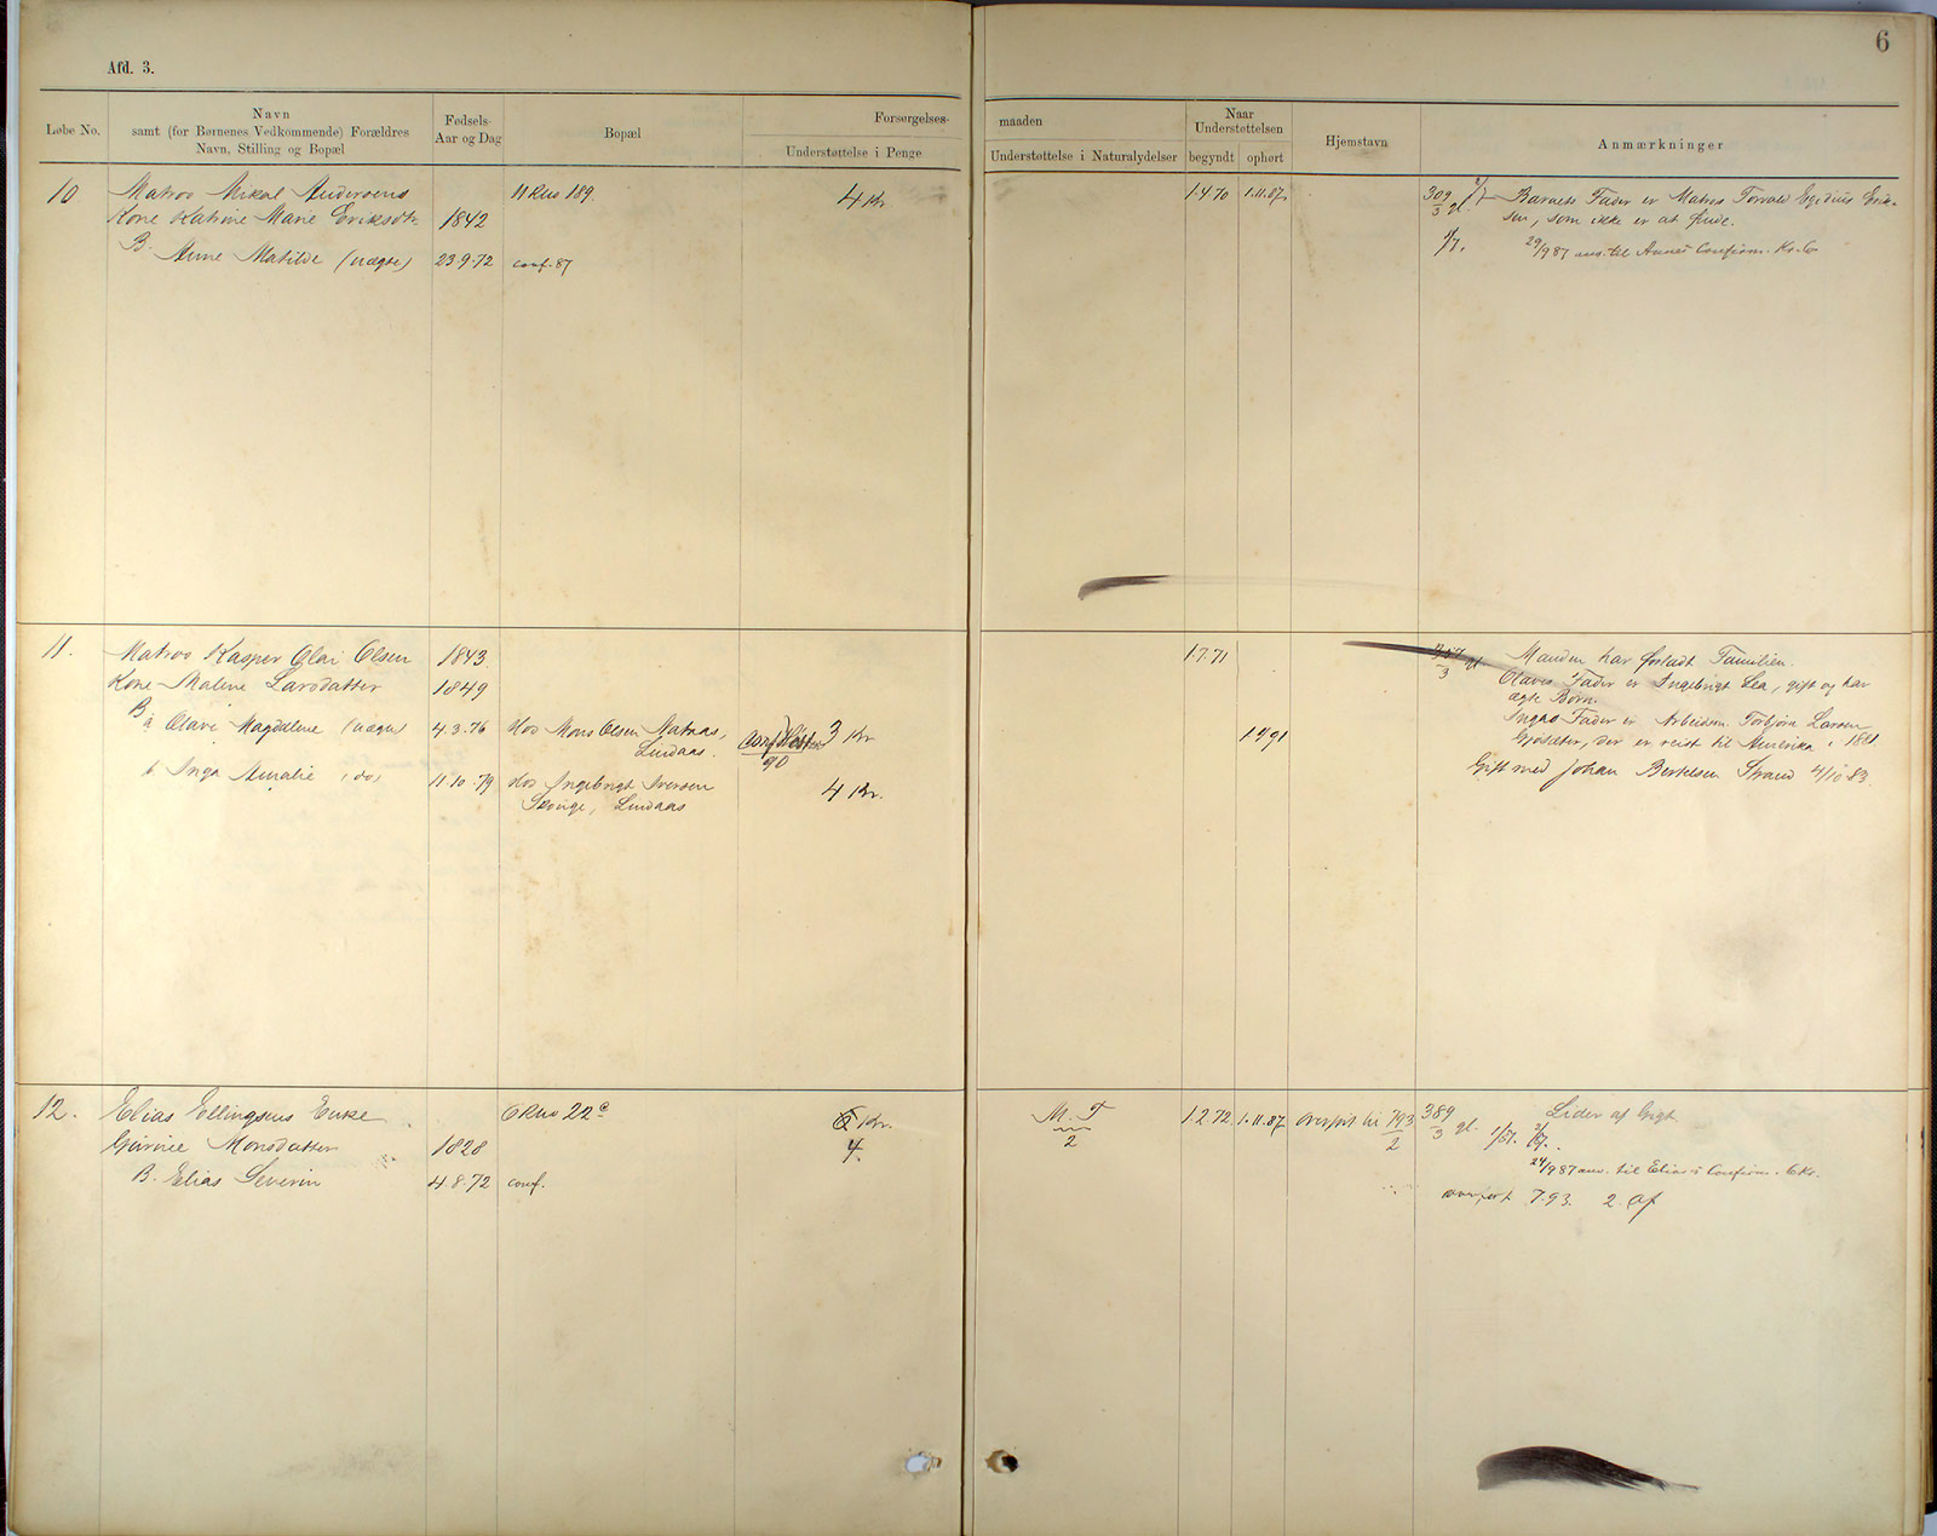 6
Afd. 3.
Løbe No.
Navn
samt (for Børnenes Vedkommende) Forældres
Navn, Stilling og Bopæl
Fødsels-
Aar og Dag
Bopæl
Forsørgelses-
Understøttelse i Penge
maaden
Understøttelse i Naturalydelser
Naar
Understøttelsen
begyndt
ophørt
Hjemstavn
Anmærkninger
10
Matros Mikal Andersens
Kone Katrine Marie Eriksdtr.
1842
11 Rno 189.
4 Kr.
1.4.70
1.11.87.
309/3 gl.
Barnets Fader er Matros Torvald Egidius Erik-
sen, som ikke er at finde.
B. Anne Matilde (uægte)
23.9.72
conf. 87
29/9 87 anv. til Annes Confirm. Kr. 6
11.
Matros Kasper Olai Olsen
1843.
1.7.71
Manden har forladt Familien.
Kone Malene Larsdatter
1849
Olaves Fader er Ingebrigt Lea, gift og har
ægte Børn.
B a Olave Magdalene (uægte)
4.3.76
Hos Mons Olsen
Lindaas.
conf Høsten
90
3 Kr
Ingas Fader er Arbeidsm. Torbjørn Larsen
der er reist til Amerika i 1881.
b Inga Amalie (do)
11.10.79
Hos Ingebrigt Iversen
Lindaas
4 Kr.
Gift med Johan Bertelsen Strand 4/10 83.
12.
Elias Ellingsens Enke
6 Rno 22c
6 Kr.
4.
M. T
2
1.2.72
1.11.87
overført til 793/2
389/3 gl.
Lider af Gigt
Monsdatter
1828
B. Elias Severin
4.8.72
conf.
24/9 87 anv. til Elias's Confirm. 6 Kr.
overført 7.93. 2. Af